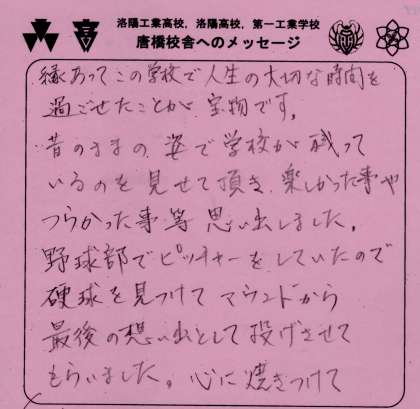 洛陽工業高校，洛陽高校，第一工業学校
唐橋校舎へのメッセージ
縁あってこの学校で人生の大切な時間を
過ごせたことが宝物です。
昔のままの姿で学校が残って
いるのを見せて頂き、楽しかった事や
つらかった事等思い出しました。
野球部でピッチャーをしていたので
硬球を見つけてマウンドから
最後の想い出として投げさせて
もらいました。心に焼きつけて